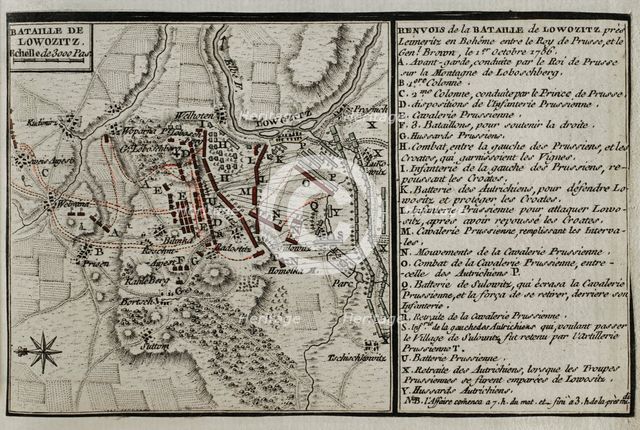 BATAILLE DE
LOWOZITZ.
Echelle de 3000 Pas.
ELBE F.
LOWOZITZ
Welhoten
Prosmich
Kadimir
Woparna
Gr. Loboschberg
Welmina
Prisen
Bilinka
Radostitz
Jesuis
Homolka M.
Kahle Berg
Bertsch
Suttom
Parc
Tschischkowitz
RENVOIS de la BATAILLE de LOWOZITZ près
Leitmeritz en Bohême entre le Roy de Prusse, et le
Genl. Brown, le 1er Octobre 1756.
A. Avant-garde, conduite par le Roi de Prusse
sur la Montagne de Loboschberg.
B. 1ere Colonne.
C. 2me Colonne, conduite par le Prince de Prusse.
D. dispositions de l'Infanterie Prussienne.
E. Cavalerie Prussienne.
F. 3. Bataillons, pour soutenir la droite.
Hussards Prussiens.
H. Combat, entre la gauche des Prussiens, et les
Croates, qui garnissoient les Vignes.
I. Infanterie de la gauche des Prussiens, re-
poussant les Croates.
K. Batterie des Autrichiens, pour défendre Lo-
wositz et protéger les Croates.
L. Infanterie Prussienne pour attaquer Lowo-
sitz, après avoir repoussé les Croates.
M. Cavalerie Prussienne, remplissant les Interva-
les.
N. Mouvements de la Cavalerie Prussienne.
O. Combat de la Cavalerie Prussienne, entre-
celle des Autrichiens P.
Q. Batterie de Sulowitz, qui écrasa la Cavalerie
Prussienne, et la força de se retirer, derriere son
Infanterie.
Retraite de la Cavalerie Prussienne.
S. Infrie de la gauche des Autrichiens qui, voulant passer
le Village de Sulowitz, fut retenu par l'Artillerie
Prussienne T.
U. Batterie Prussienne.
X. Retraite des Autrichiens, lorsque les Troupes
Prussiennes se furent emparées de Lowositz.
Y. Hussards Autrichiens.
NB. l'Affaire comença a 7. h. du mat. et finit a 3. h de la près